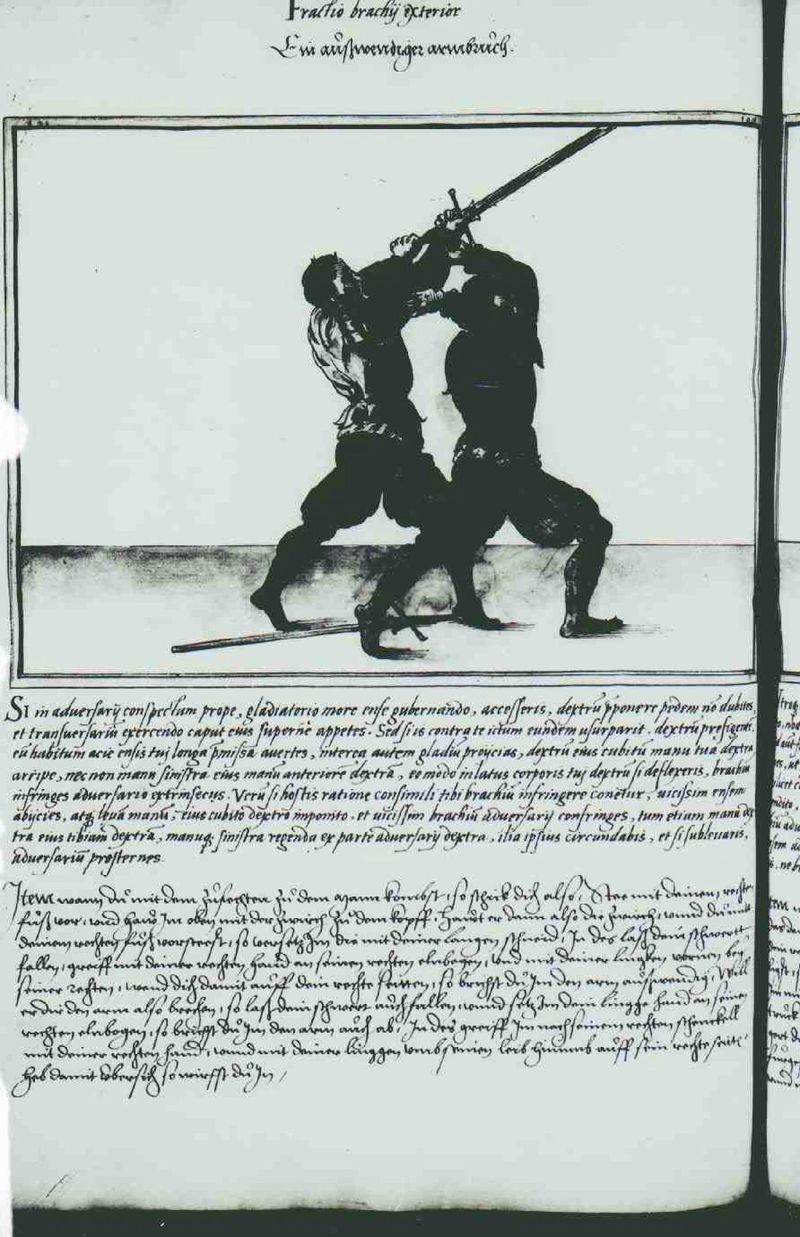 Fractio brachij exterior
Ein außwendiger armbruch.
SI in adversarij conspectum prope, gladiatorio more ense gubernando, accesseris, dextrū pponere pedem nō dubites
et transversariū exercendo caput eius superne appetes. Sed si is contra te ictum eundem usurparit, dextrū prefigente
eū habitum acie ensis tui longa pmissa avertes, interea autem gladiū proijcias, dextrū eius cubitū manu tua dextra
arripe, nec non manu sinistra eius manū anteriore dextrā, eo modo in latus corporis tui dextrū si deflexeris, brachiū
infringes adversario extrinsecus. Verū si hostis ratione consimili tibi brachiū infringere conetur, vicissim ensem
abijcies, atq; leva manu, eius cubito dextro imposito, et vicissim brachiū adversarij confringes, tum etiam manu dex
tra eius tibiam dextrā, manuq; sinistra regenda ex parte adversarij dextra, ilia ipsius circundabis, et si sublevaris,
adversariū prosternes.
Item wann du mit dem zufechten zu dem Mann kombst, so schick dich also, Stee mit deinem rechte
fuß vor, und haw Im oben mit der zwirch zu dem kopff, Hawt er dann also die zwirch, unnd du mitt
deinem rechten fuß vorsteest, so versetz Im die mit deiner langen schneid, In des laß dein schwertt
fallen, greiff mit deiner rechten Hand an seinen rechten elnbogen, und mit deiner lingken vornen bey
seiner rechten, wend dich damit auff dein rechte seitten, so brichst du Im den arm außwendig, Will
er dir den arm also brechen, so laß dein schwert auch fallen, unnd setz Im dein lingge hand an seinen
rechten elnbogen, so brichst du Im den arm auch ab, In des greiff Im nach seinem rechten schenckell
mit deiner rechten hand, unnd mit deiner linggen umb seinen leib hinumb auff sein rechte seite,
heb damit übersich so wirffst du In,